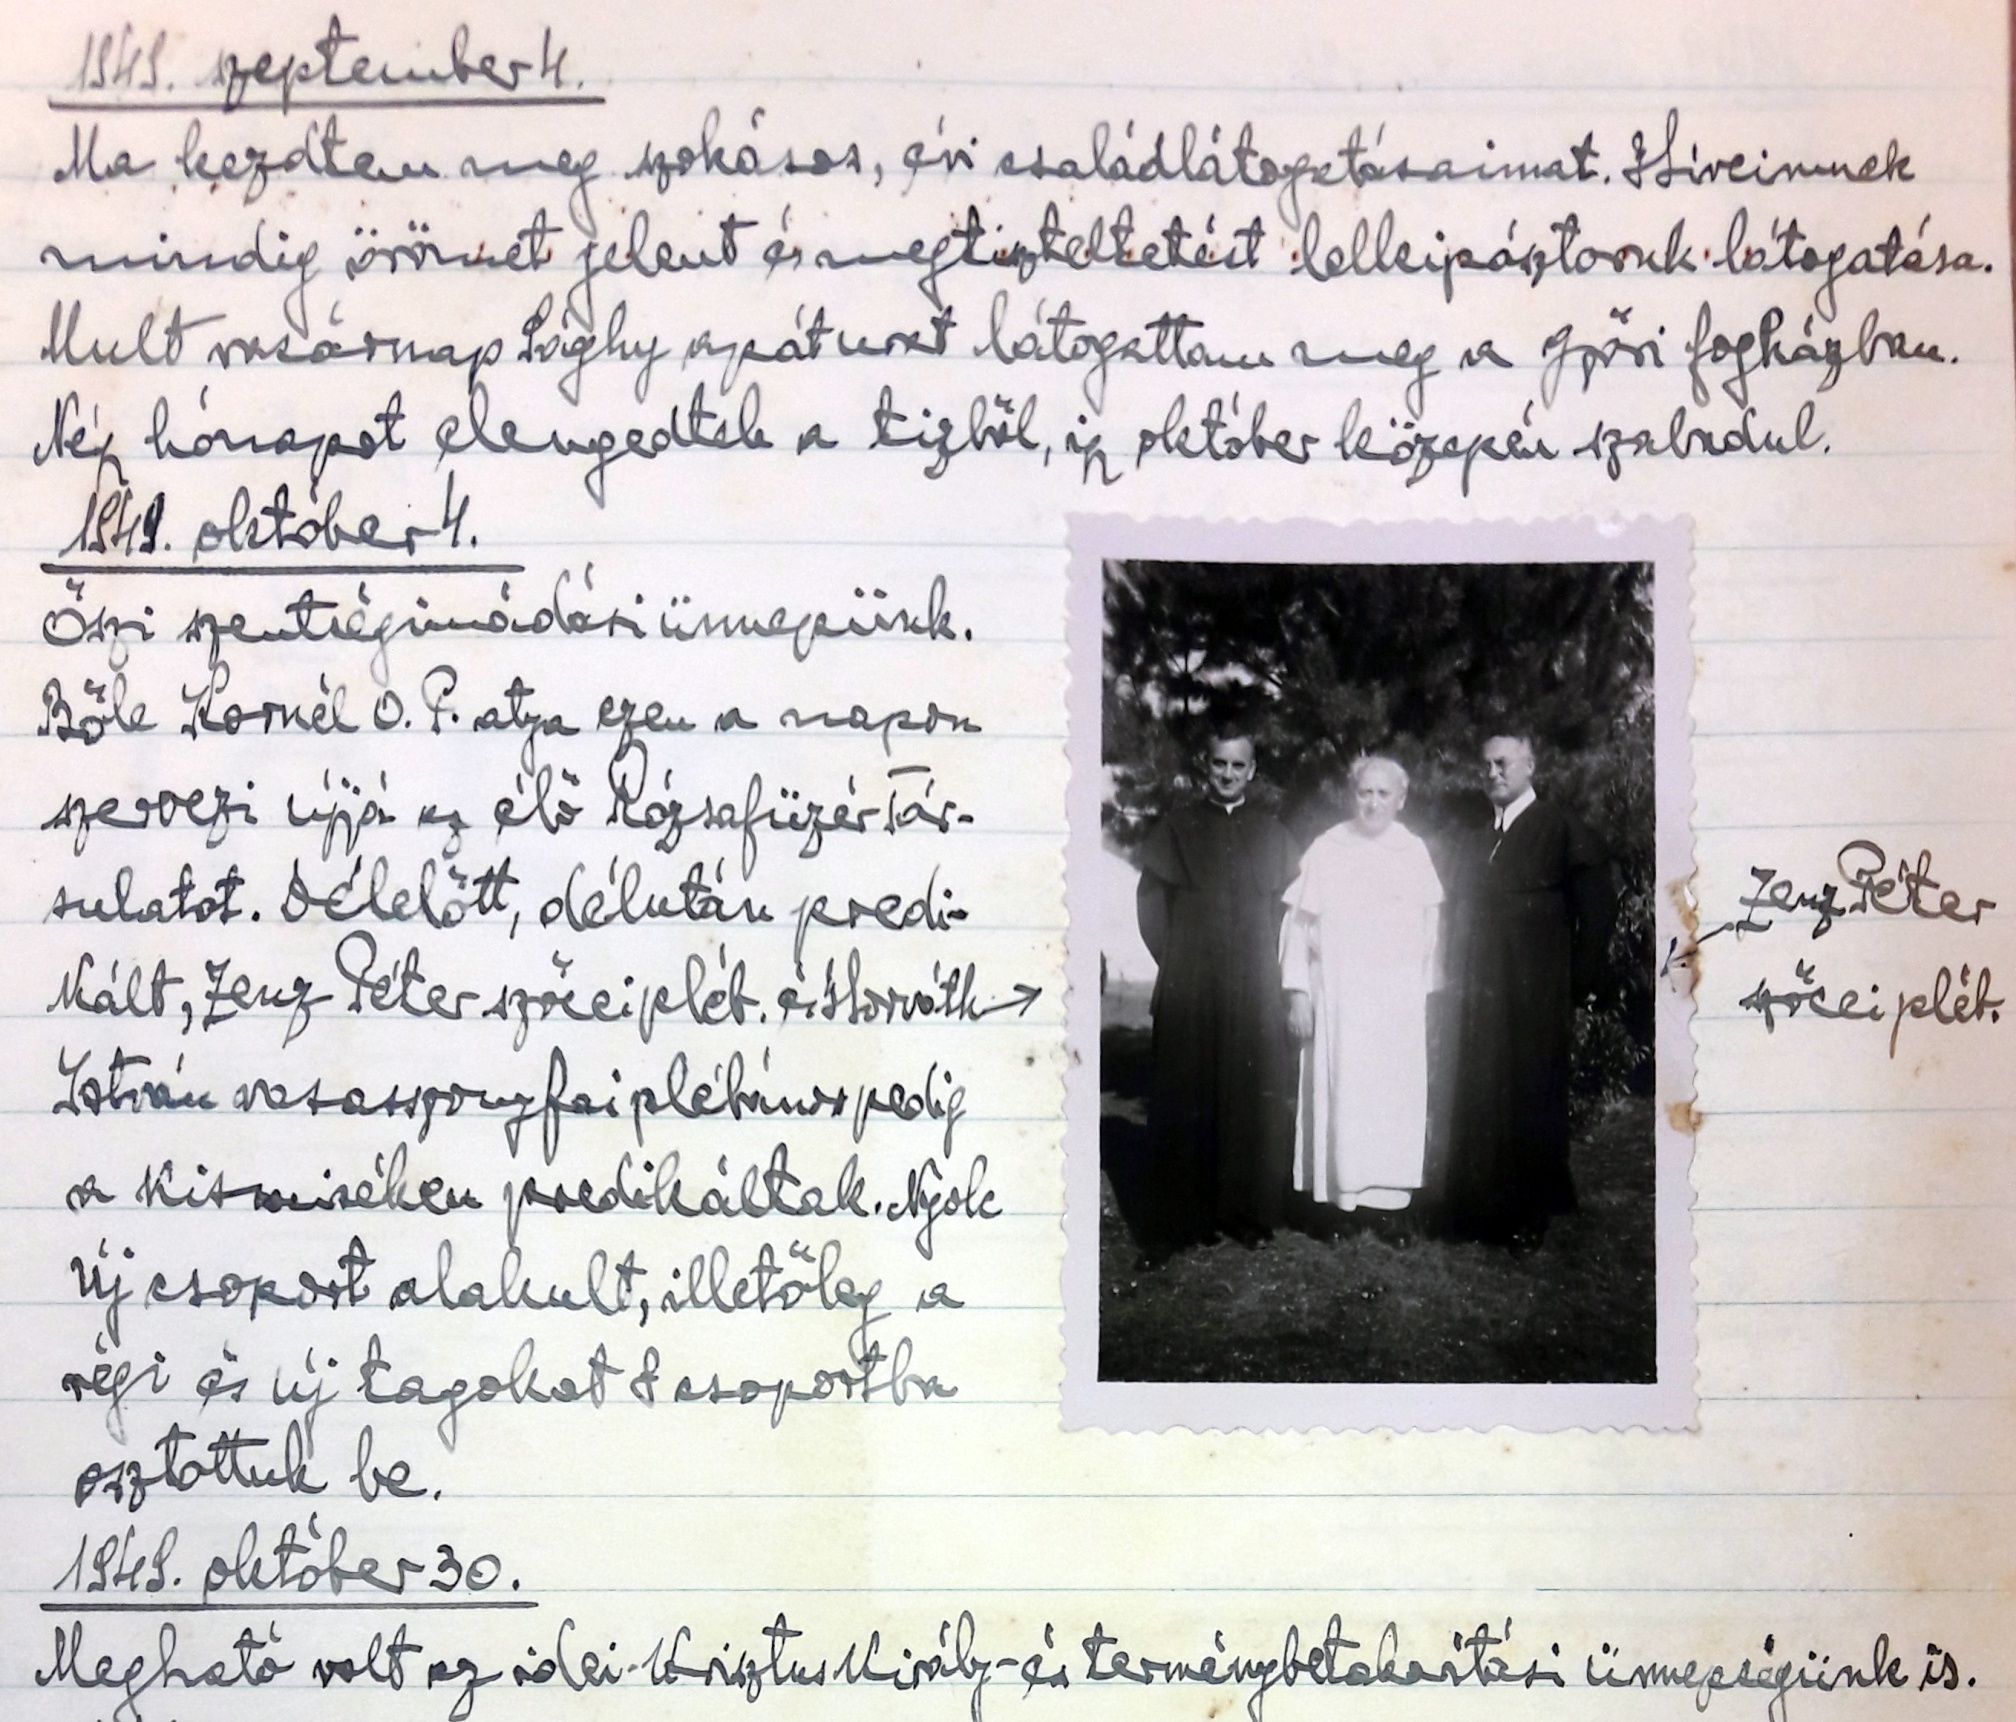 1949. szeptember 4.
Ma kezdtem meg szokásos, évi családlátogatásaimat. Híveimnek
mindig örömet jelent és megtiszteltetést lelkipásztoruk látogatása.
Mult vasárnap Sághy apát urat látogattam meg a győri fogházban.
Négy hónapot elengedtek a tizből, így október közepén szabadul.
1949. október 4.
Őszi szentségimádási ünnepünk.
Bőle Kornél O. P. atya ezen a napon
szervezi újjá az élő Rózsafüzér Tár-
sulatot. Délelőtt, délután predi-
kált, Zenz Péter szőcei pléb. és Horváth →
István vasasszonyfai plébános pedig
a kismiséken predikáltak. Nyolc
új csoport alakult, illetőleg a
régi és új tagokat 8 csoportba
osztottuk be.
Zenz Péter
szőcei pléb.
1949. október 30.
Megható volt az idei Krisztus Király- és terménybetakarítási ünnepségünk is.